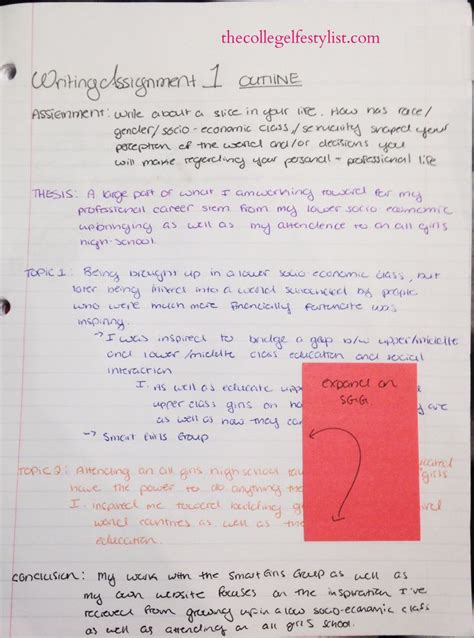 thecollegelfestylist.com
Writing Assignment 1 OUTLINE
ASSIGNMENT: write about a slice in your life. How has race/
gender/socio-economic class/sexuality shaped your
perception of the world and/or decisions you
will make regarding your personal + professional life
THESIS: A large part of what I am working toward for my
professional career stem from my lower socio economic
upbringing as well as my attendence to an all girls
high-school.
TOPIC 1: Being brought up in a lower socio economic class, but
later being mixed into a world surrounded by people
who were much more financially fortunate was
inspiring.
→ I was inspired to bridge a gap b/w upper/middle
and lower/middle class education and social
interaction
I. As well as educate upp
upper class girls on ho
are
as well as how they can
→ Smart Girls Group
expand on
SGG
TOPIC 2: Attending an all girls high school
have the power to do anything
girls
I. inspired me toward building
world countries as well as the
education.
conclusion: My work with the Smart Girls Group as well as
my own website focuses on the inspiration I've
recieved from growing up in a low socio-economic class
as well as attending an all girls school.